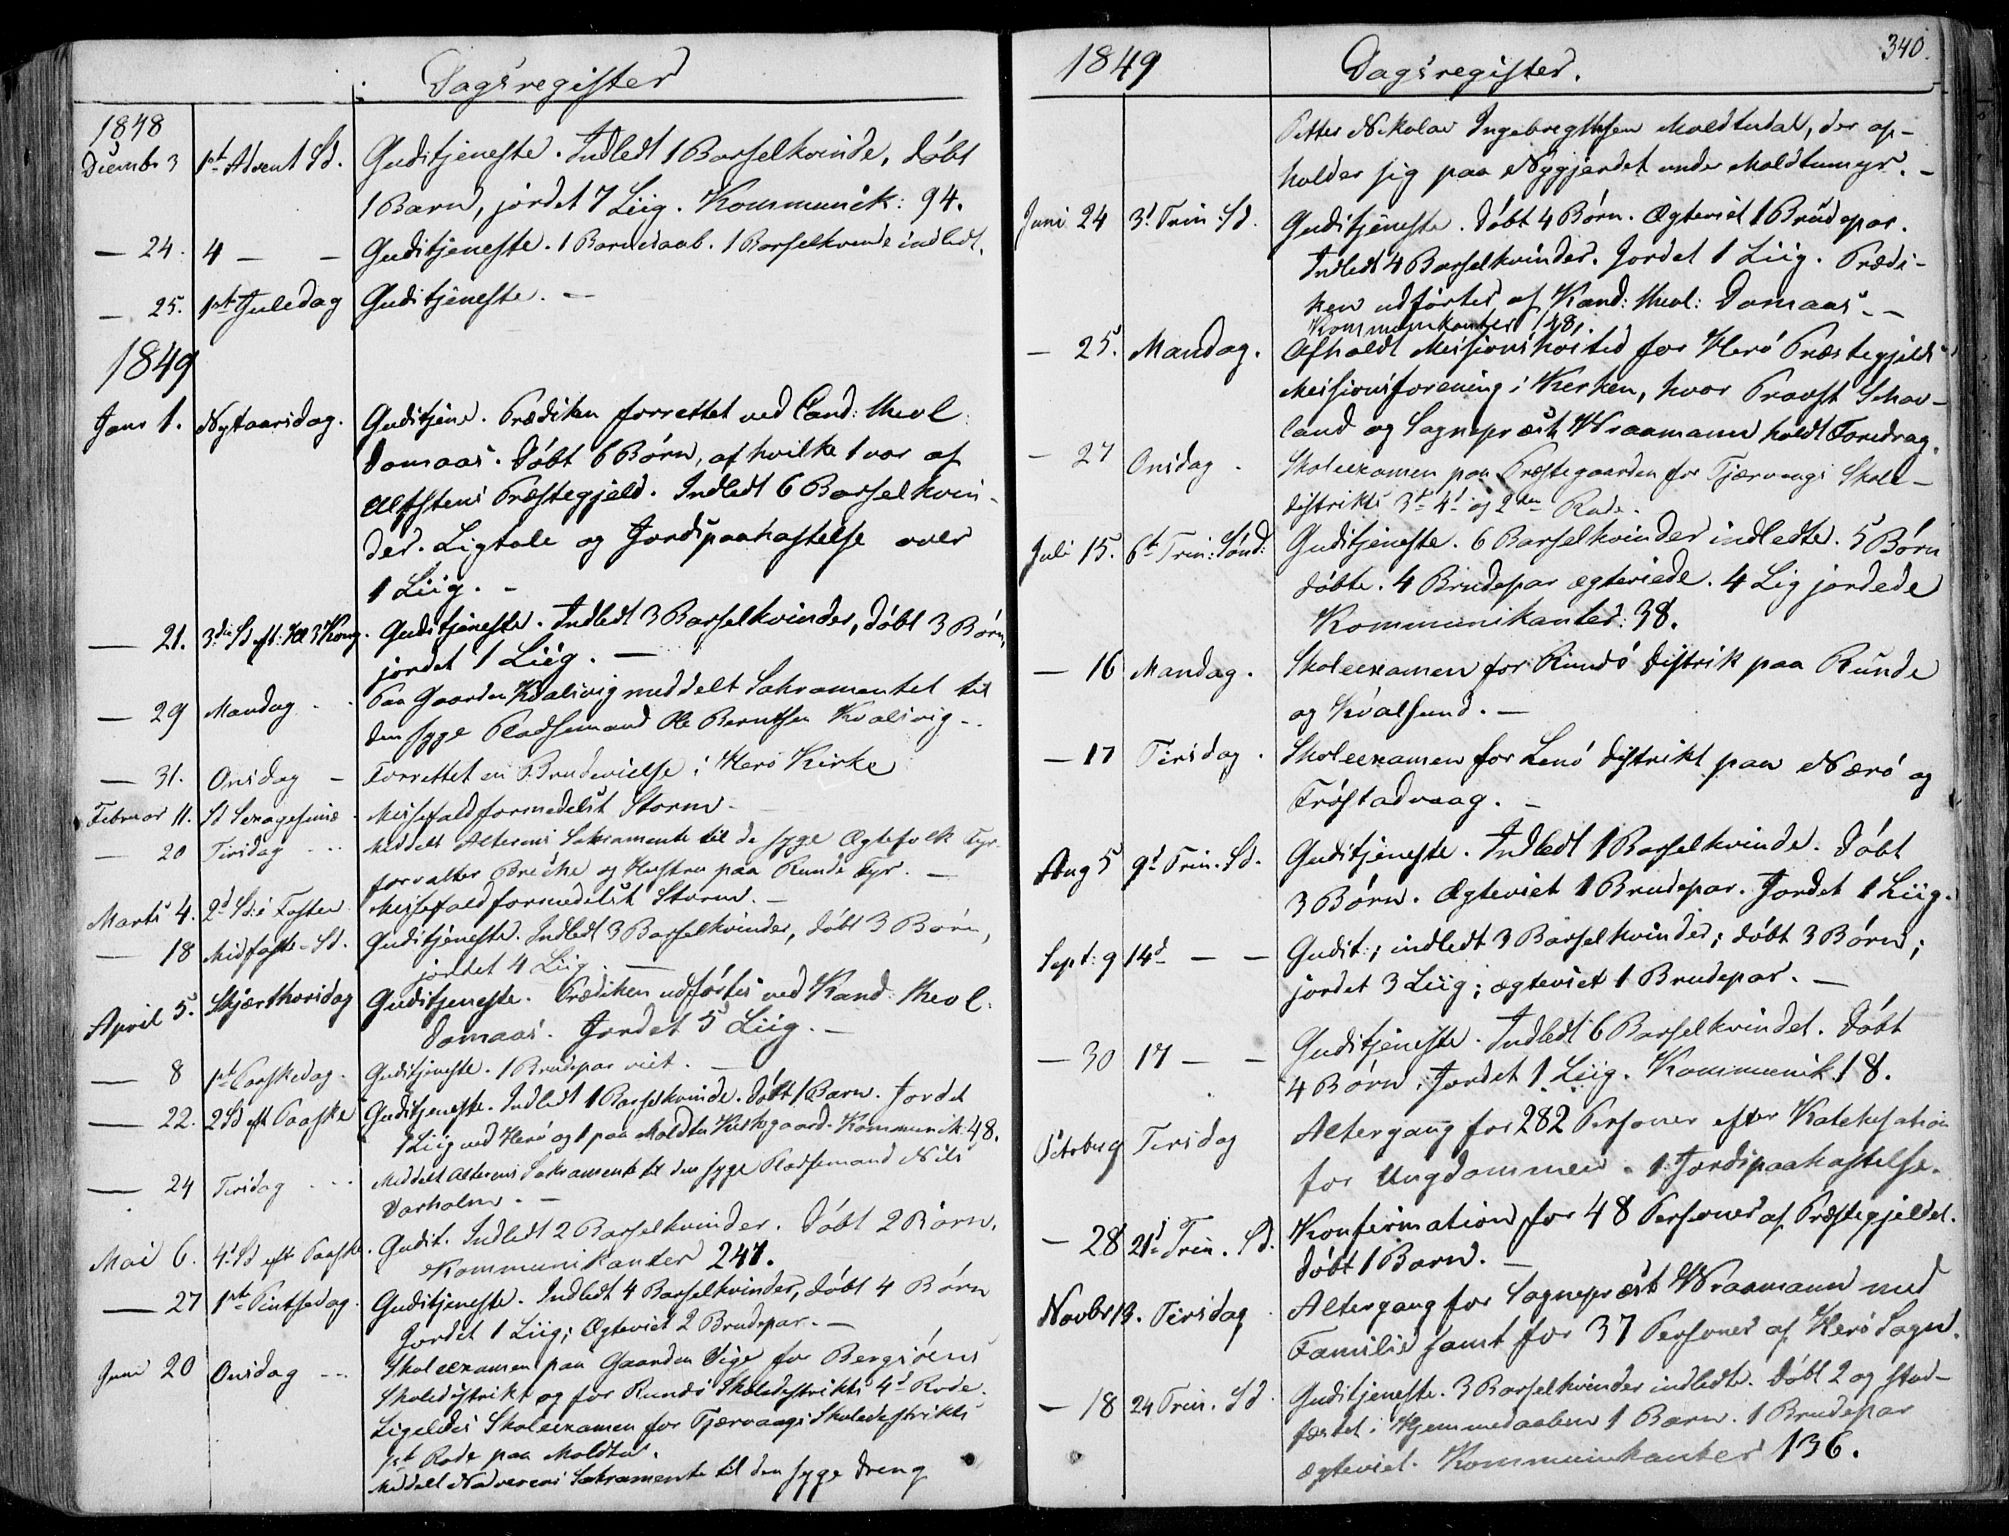 Dagsregister
1848
Decemb. 3 1ste Advent Sd. Gudstjeneste. Indledt 1 Barselkvinde, døbt
1 Barn, jordet 7 Liig. Kommunik: 94.
— 24. 4 — — Gudstjeneste. 1 Barnedaab. 1 Barselkvinde indledt.
— 25. 1ste Juledag Gudstjeneste. —
1849
Janr 1. Nytaarsdag. Gudstjene. Prædiken forrettet ved Cand: theol
Domaas. Døbt 6 Børn, af hvilke 1 var af
Ulfstens Præstegjeld. Indledt 6 Barselkvin-
der. Ligtale og Jordspaakastelse over
1 Liig. —
— 21. 3die Sd eft: H 3 Kong. Gudstjeneste. Indledt 3 Barselkvinder, døbt 3 Børn,
jordet 1 Liig. —
— 29 Mandag Paa Gaarden Kvalsvig meddelt Sakramentet til
den syge Pladsemand Ole Berntsen Kvalsvig —
— 31. Onsdag — Forrettet en Brudevielse i Herø Kirke
Februar 11. Sd Sexagesimæ Messefald formedelst Storm —
— 20 Tirsdag Meddelt Alterens Sakramente til de syge Ægtefolk Fyr
forvalter og Hustru paa Runde Fyr. —
Marts 4. 2d Sd i Fasten Messefald formedelst Storm. —
— 18 Midfaste-Sd. Gudstjeneste. Indledt 3 Barselkvinder, døbt 3 Børn,
jordet 4 Liig. —
April 5. Skjærthorsdag Gudstjeneste. Prædiken udførtes ved Kand: theol.
Domaas. Jordet 5 Liig. —
— 8 1ste Paaskedag. Gudstjeneste. 1 Brudepar viet. —
— 22. 2 Sd eft Paaske Gudstjeneste. Indledt 1 Barselkvinde. Døbt 1 Barn. Jordet
1 Liig ved Herø og 1 paa Moldtu Kirkegaard. Kommunik: 48.
— 24 Tirsdag Meddelt Alterens Sakramente til den syge Pladsemand Nils
Varholm. —
Mai 6. 4d Sd eft Paaske. Gudst. Indledt 2 Barselkvinder. Døbt 2 Børn.
Kommunikanter 247.
— 27 1ste Pintsedag. Gudstjeneste. Indledt 4 Barselkvinder, døbt 4 Børn
Jordet 1 Liig; Ægteviet 2 Brudepar. —
Juni 20 Onsdag Skoleexamen paa Gaarden Vige for Bergsøens
Skoledistrikt og for Rundø Skoledistrikts 4d Rode.
Ligeledes Skoleexamen for Tjærvaags Skoledistrikts
1ste Rode paa Moldtu.
Meddelt Nadverens Sakramente til den syge Dreng
1849
Dagsregister.
340.
Petter Nikolai Ingebrigtsen Moldtudal, der op-
holder sig paa Nygjerdet under Moldtumyr. —
Juni 24 3d Trin: Sd. Gudstjeneste. Døbt 4 Børn. Ægteviet 1 Brudepar.
Indledt 4 Barselkvinder. Jordet 1 Liig. Prædi-
ken udførtes af Kand: theol: Domaas. —
Kommunikanter 148.
— 25. Mandag. Afholdt Missionshøitid for Herø Præstegjelds
Missionsforening i Kirken, hvor Provst
land og Sognepræst Wraamann holdt Foredrag.
— 27 Onsdag. Skoleexamen paa Præstegaarden for Tjærvaags Skole-
distrikts 3d 4d og 2den Rode.
Juli 15. 6te Trin: Sønd: Gudstjeneste. 6 Barselkvinder indledte. 5 Børn
døbte. 4 Brudepar ægteviede. 4 Lig jordede
Kommunikanter: 38.
— 16 Mandag. Skoleexamen for Rundø Distrik paa Runde
og Kvalsund. —
— 17 Tirsdag. Skoleexamen for Lenø Distrikt paa Nærø og
Frøstadvaag. —
Aug 5 9d Trin. Sd. Gudstjeneste. Indledt 1 Barselkvinde. Døbt
3 Børn. Ægteviet 1 Brudepar. Jordet 1 Liig.
Sept: 9 14d — — Gudst: ; indledt 3 Barselkvinder; døbt 3 Børn;
jordet 3 Liig; ægteviet 1 Brudepar. —
— 30 17 — — Gudstjeneste. Indledt 6 Barselkvinder. Døbt
4 Børn. Jordet 1 Liig. Kommunik. 18.
Octobr 9 Tirsdag Altergang for 282 Personer efter Katekesation
for Ungdommen. 1 Jordspaakastelse.
— 28 21d Trin. Sd. Konfirmation for 48 Personer af Præstegjeldet.
Døbt 1 Barn. —
Novbr 13. Tirsdag Altergang for Sognepræst Wraamann med
Familie samt for 37 Personer af Herø Sogn.
— 18 24 Trin. Sd. Gudstjeneste. 3 Barselkvinder indledte. Døbt 2 og stad-
fæstet i Hjemmedaaben 1 Barn. 1 Brudepar
ægteviet. Kommunikanter 136.